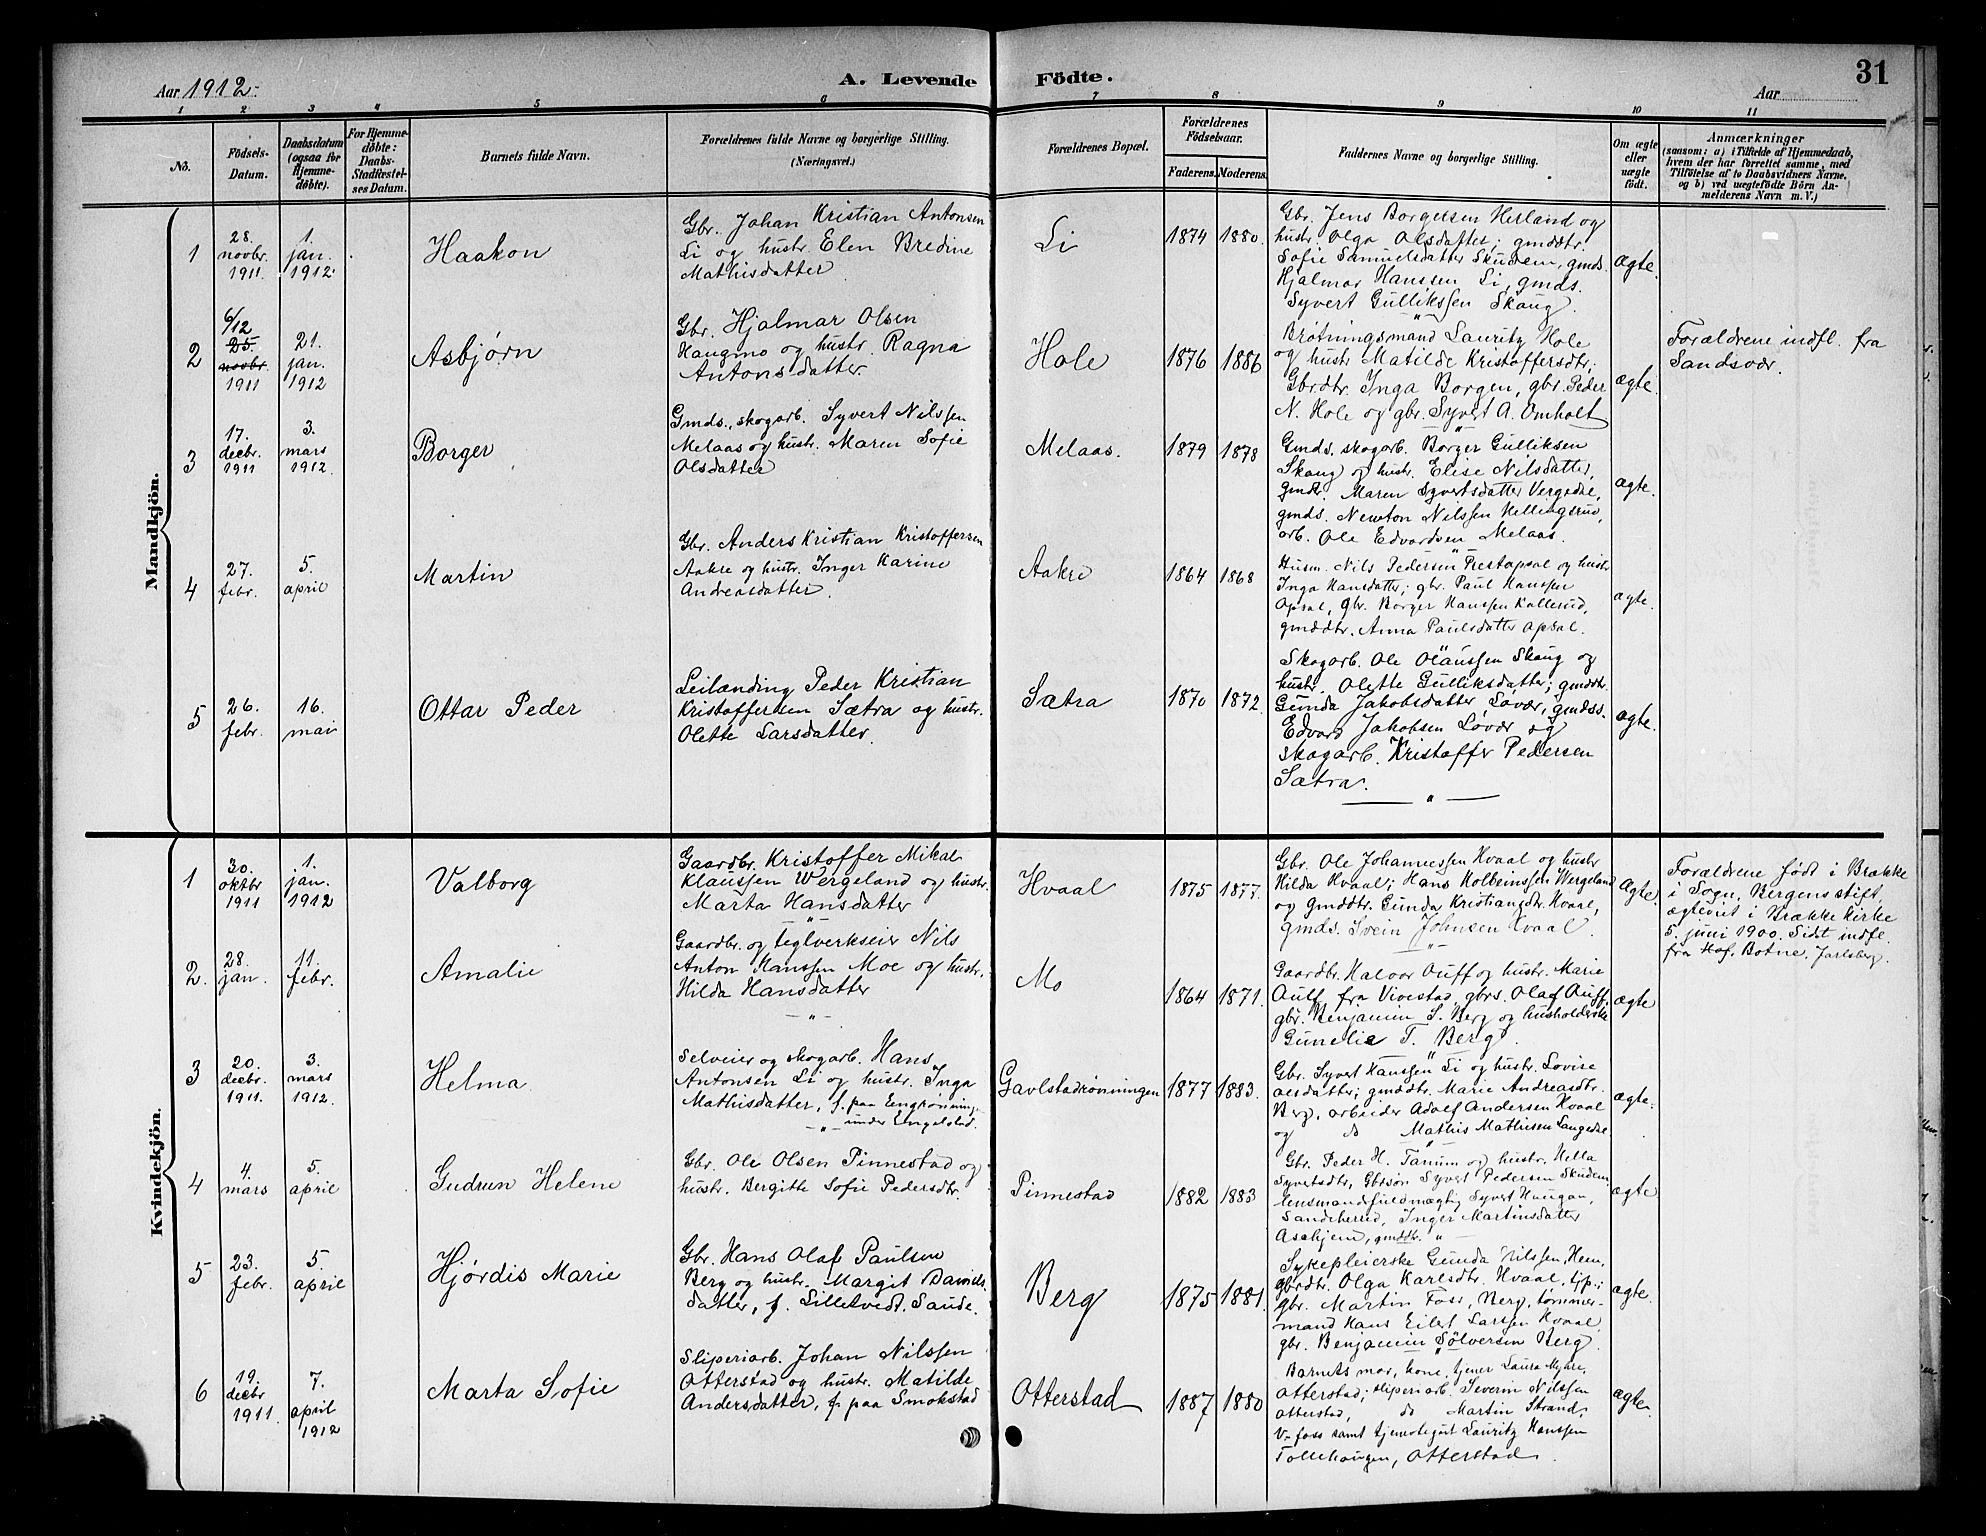 Aar 1912.
A. Levende
Födte.
Aar
31
1 2 3 4 5 6 7 8 9 10 11
No.
Födsels-
Datum.
Daabsdatum
(ogsaa for
Hjemme-
döbte).
For Hjemme-
döbte:
Daabs-
Stadfæstel-
ses Datum.
Barnets fulde Navn.
Forældrenes fulde Navne og borgerlige Stilling.
(Næringsvei.)
Forældrenes Bopæl.
Forældrenes
Födselsaar.
Faderens. Moderens.
Faddernes Navne og borgerlige Stilling.
Om ægte
eller
uægte
födt.
Anmærkninger
(saasom: a) i Tilfælde af Hjemmedaab,
hvem der har forrettet samme, med
Tilföielse af to Daabsvidners Navne,
og b) ved uægtefödte Börn An-
melderens Navn m. V.)
Mandkjön.
1
28.
novbr.
1911
1.
jan.
1912.
Haakon
Gbr. Johan Kristian Antonsen
Li og hustr. Elen Bredine
Mathisdatter.
Li
1874 1880.
Gbr. Jens Borgersen Herland og
hustr. Olga Olsdatter; gmddtr.
Sofie Samuelsdatter Skudem, gmds.
Hjalmar Hanssen Li, gmds.
Syvert Gulliksen Skaug.
ægte.
2
6/12
25.
novbr.
1911
21.
jan.
1912
Asbjørn
Gbr. Hjalmar Olsen
Haugmo og hustr. Ragna
Antonsdatter.
Hole
1876 1886
Brötningsmand Lauritz Hole
og hustr Matilde Kristoffersdtr;
Gbrdtr. Inga Borgen, gbr. Peder
N. Hole og gbr. Syvert A. Omholt
ægte.
Forældrene indfl. fra
Sandsvær.
3
17.
decbr.
1911
3.
mars
1912.
Borger
Gmds., skogarb. Syvert Nilssen
Melaas og hustr. Maren Sofie
Olsdatter
Melaas.
1879 1878
Gmds. skogarb. Borger Gulliksen
Skaug og hustr. Elise Nilsdatter,
gmdtr. Maren Syvertsdatter Vergedal,
gmds. Newton Nilssen Hellingsrud,
arb. Ole Edvardsen Melaas.
ægte.
4
27.
febr.
5.
april
Martin
Gbr. Anders Kristian Kristoffersen
Aakre og hustr. Inger Karine
Andreasdatter.
Aakre
1864 1868
Husm. Nils Pedersen Prestapsal og hustr
Inga Hansdatter; gbr. Paul Hanssen
Apsal, gbr. Borger Hanssen Kallerud,
gmddtr. Anna Paulsdatter Apsal.
ægte.
5
26.
febr.
16.
mai
Ottar Peder
Leilænding Peder Kristian
Kristoffersen Sætra og hustr.
Olette Larsdatter.
Sætra
1870 1872.
Skogarb. Ole Olaussen Skaug og
hustr. Olette Gulliksdatter; gmddtr.
Gunda Jakobsdatter Løvær, gmdss.
Edvard Jakobsen Løvær og
skogarb. Kristoffer Pedersen
Sætra.
ægte.
Kvindekjön.
1
30.
oktbr
1911
1.
jan.
1912
Valborg
Gaardbr. Kristoffer Mikal
Klaussen Wergeland og hustr.
Marta Hansdatter
Hvaal
1875 1877.
Gbr. Ole Johannessen Hvaal og hustr
Hilda Hvaal; Hans Kolbeinssen Wergeland
og gmddtr. Gunda Kristiansdtr. Hvaal,
gmds. Svein Johnsen Hvaal.
Ægte.
Forældrene født i Brække
i Sogn, Bergens stift,
ægteviet i Brække kirke
5. juni 1900. Sidst indfl.
fra Hof, Botne, Jarlsberg.
2.
28.
jan.
11.
febr.
Amalie
Gaardbr. og teglverkseier Nils
Anton Hanssen Moe og hustr.
Hilda Hansdatter
Mo
1864 1871.
Gaardbr. Halvor Auff og hustr. Marie
Aulf fra Vivestad, gbrs. Olaf Auff,
gbr. Benjamin S. Berg og husholderske
Gunelie T. Berg.
ægte
3
20.
decbr.
1911.
3.
mars
1912.
Helma
Selveier og skogarb. Hans
Antonsen Li og hustr. Inga
Mathisdatter, f. paa Engrønning
under Engelstad.
Gavlstadrønningen
1877 1883.
Gbr. Syvert Hanssen Li og hustr. Lovise
Olsdatter; gmddtr. Marie Andreasdtr.
Berg, arbeider Adolf Andersen Hvaal
og do Mathis Mathisen Langedre.
ægte.
4
4.
mars
5.
april
Gudrun Helene
Gbr. Ole Olsen Pinnestad og
hustr. Bergitte Sofie Pedersdtr.
Pinnestad
1882 1883
Gbr. Peder H. Tanum og hustr. Hella
Syvertsdtr, Gbrsön Syvert Pedersen Skudem,
lensmandsfuldmægtig Syvert Haugan,
Sandeherred, Inger Martinsdatter
Askjem, gmddtr.
ægte
5
23.
febr.
5.
april
Hjørdis Marie
Gbr. Hans Olaf Paulsen
Berg og hustr. Margit Davids-
datter, f. Lilletvedt, Sande.
Berg
1875 1881.
Sykepleierske Gunda Nilssen, Hem,
gbrdtr. Olga Karlsdtr. Hvaal, tjp.;
gbr. Martin Foss, Berg, tømmer-
mand Hans Eilert Larssen Hvaal,
gbr. Benjamin Sölversen Berg
ægte.
6
19.
decbr
1911.
7.
april
1912
Marta Sofie
Sliperiarb. Johan Nilssen
Otterstad og hustr. Matilde
Andersdatter, f. paa Smokstad
Otterstad
1887 1880
Barnets mor, kone, tjener Laura Myhre,
Otterstad; sliperiarb. Severin Nilssen
Otterstad, do Martin Strand,
V-foss samt tjenestegut Lauritz Hanssen
Tollehaugen, Otterstad.
ægte.